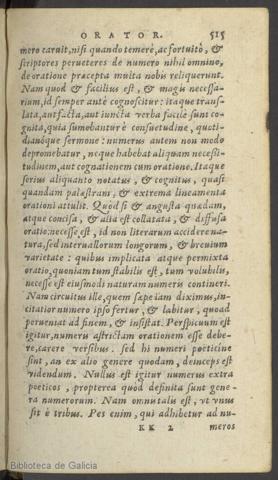 ORATOR. 515
mero caruit, nisi quando temere, ac fortuito, &
scriptores perueteres de numero nihil omnino,
de oratione præcepta multa nobis reliquerunt.
Nam quod & facilius est, & magis necessa-
rium, id semper ante cognoscitur: itaque trans-
lata, aut facta, aut iuncta verba facile sunt co-
gnita, quia sumebantur è consuetudine, quoti-
dianóque sermone: numerus autem non modo
depromebatur, neque habebat aliquam necessi-
tudinem, aut cognationem cum oratione. Itaque
serius aliquanto notatus, & cognitus, quasi
quandam palæstram, & extrema lineamenta
orationi attulit. Quòd si & angusta quædam,
atque concisa, & alia est collatata, & diffusa
oratio: necesse est, id non literarum accidere na-
tura, sed interuallorum longorum, & breuium
varietate: quibus implicata atque permixta
oratio, quoniam tum stabilis est, tum volubilis,
necesse est eiusmodi naturam numeris contineri.
Nam circuitus ille, quem sæpe iam diximus, in-
citatior numero ipso fertur, & labitur, quoad
perueniat ad finem, & insistat. Perspicuum est
igitur, numeris astrictam orationem esse debe-
re, carere versibus. sed hi numeri poëticine
sint, an ex alio genere quodam, deinceps est
videndum. Nullus est igitur numerus extra
poëticos, propterea quòd definita sunt gene-
ra numerorum. Nam omnis talis est, vt vnus
sit è tribus. Pes enim, qui adhibetur ad nu-
KK 2 meros
Biblioteca de Galicia